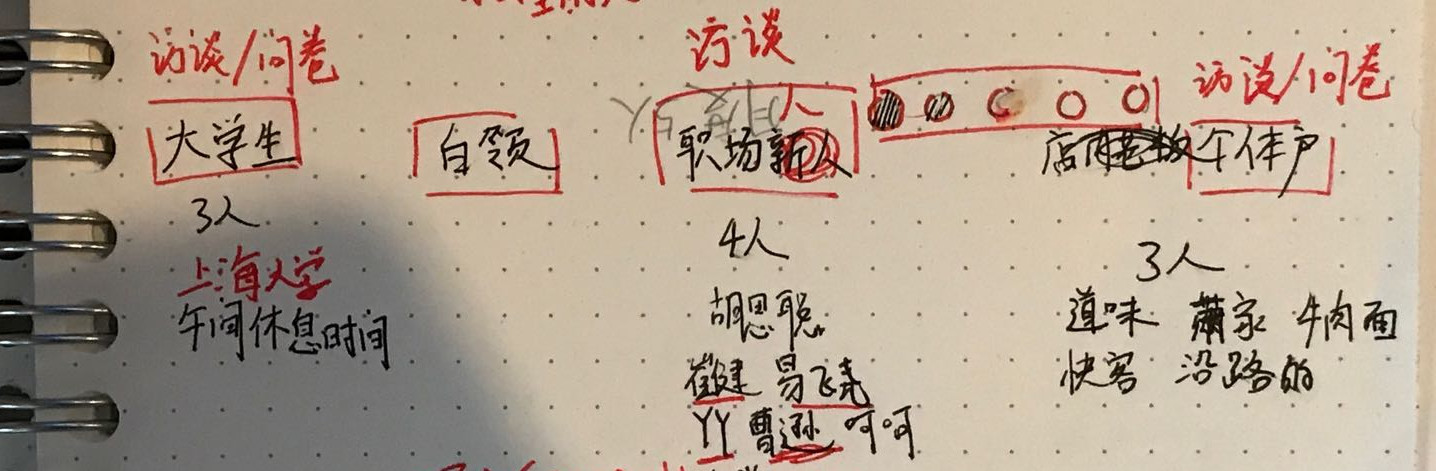 访谈/问卷
访谈
访谈/问卷
大学生 白领 职场新人 店 个体户
3人
4人
3人
上海大学
午间休息时间
胡思聪
崔健 易飞尧
YY 曹逊 呵呵
道味 萧家 牛肉面
快客 沿路的